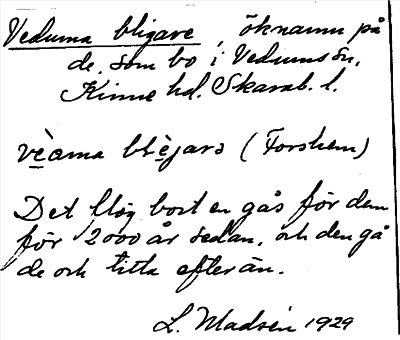 Veduma bligare, öknamn på
de, som bo i Vedums sn,
Kinne hd. Skarab. l.
vèama blèjara (Forshem)
Det flög bort en gås för dem
för 2000 år sedan, och den gå
de och titta efter än.
L. Madsén 1929